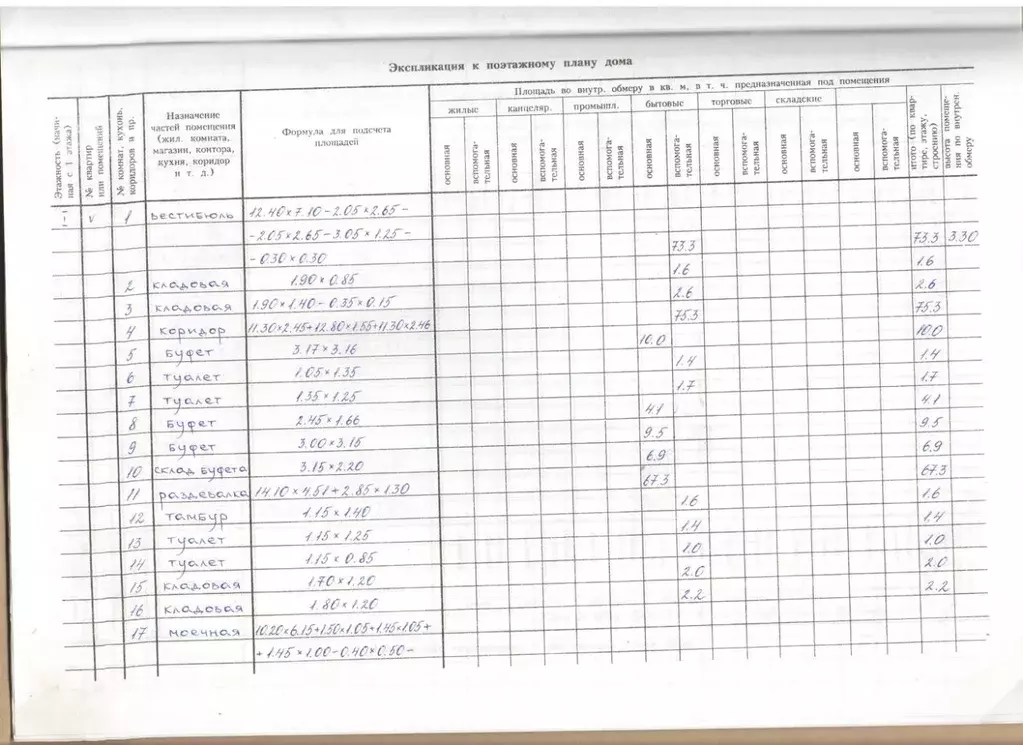 Экспликация к поэтажному плану дома
Этажность (начиная с 1 этажа)
№ квартир или помещений
№ комнат, кухонь, коридоров и пр.
Назначение частей помещения (жил. комната, магазин, контора, кухня, коридор и т. д.)
Формула для подсчета площадей
Площадь во внутр. обмеру в кв. м, в т. ч. предназначенная под помещения
жилые канцеляр. промышл. бытовые торговые складские
основная вспомога-тельная основная вспомога-тельная основная вспомога-тельная основная вспомога-тельная основная вспомога-тельная основная вспомога-тельная основная вспомога-тельная
итого (по квартире, этажу, строению)
высота помещения по внутрен. обмеру
V 1 Вестибюль 12.40×7.10-2.05×2.65-
-2.05×2.65-3.05×1.25-
-0.30×0.30 73.3 73.3 3.30
2 кладовая 1.90×0.85 1.6 1.6
3 кладовая 1.90×1.40-0.35×0.15 2.6 2.6
4 коридор 11.30×2.45+12.80×1.55+11.30×2.46 75.3 75.3
5 Буфет 3.17×3.16 10.0 10.0
6 туалет 1.05×1.35 1.4 1.4
7 туалет 1.35×1.25 1.7 1.7
8 Буфет 2.45×1.66 4.1 4.1
9 Буфет 3.00×3.15 9.5 9.5
10 склад буфета 3.15×2.20 6.9 6.9
11 раздевалка 14.10×4.51+2.85×1.30 67.3 67.3
12 тамбур 1.15×1.40 1.6 1.6
13 туалет 1.15×1.25 1.4 1.4
14 туалет 1.15×0.85 1.0 1.0
15 кладовая 1.70×1.20 2.0 2.0
16 кладовая 1.80×1.20 2.2 2.2
17 моечная 10.20×6.15+1.50×1.05+1.45×1.05+
+1.45×1.00-0.40×0.50-